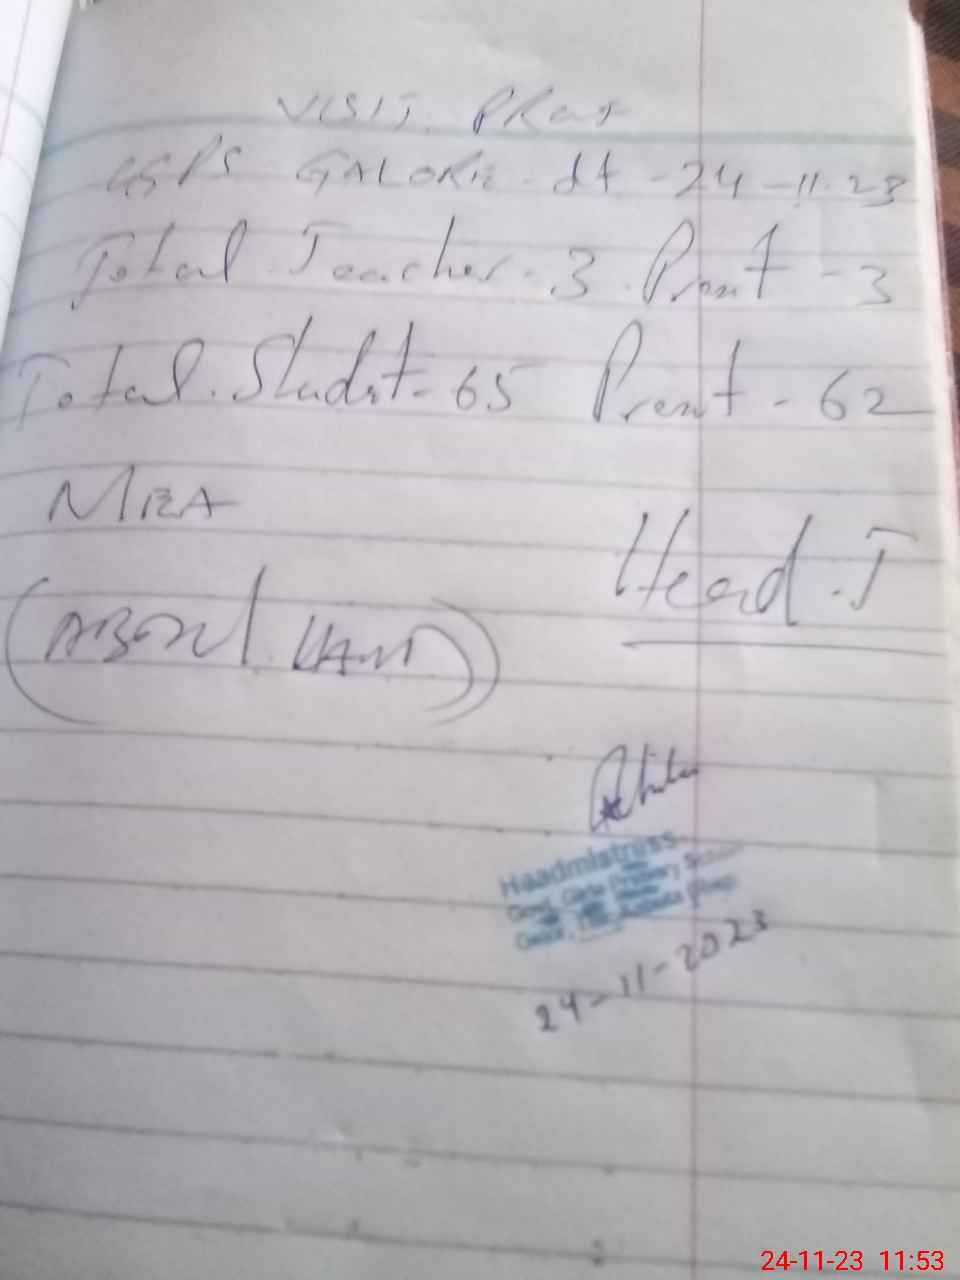 VISIT. PROF
GGPS GALORE - dt - 24-11-23
Total Teacher - 3. Prent - 3
Total. Studet - 65 Prent - 62
MEA
Head. T
(ABDUL
Headmistress
Govt. Girls Primary School
24-11-2023
24-11-23 11:53